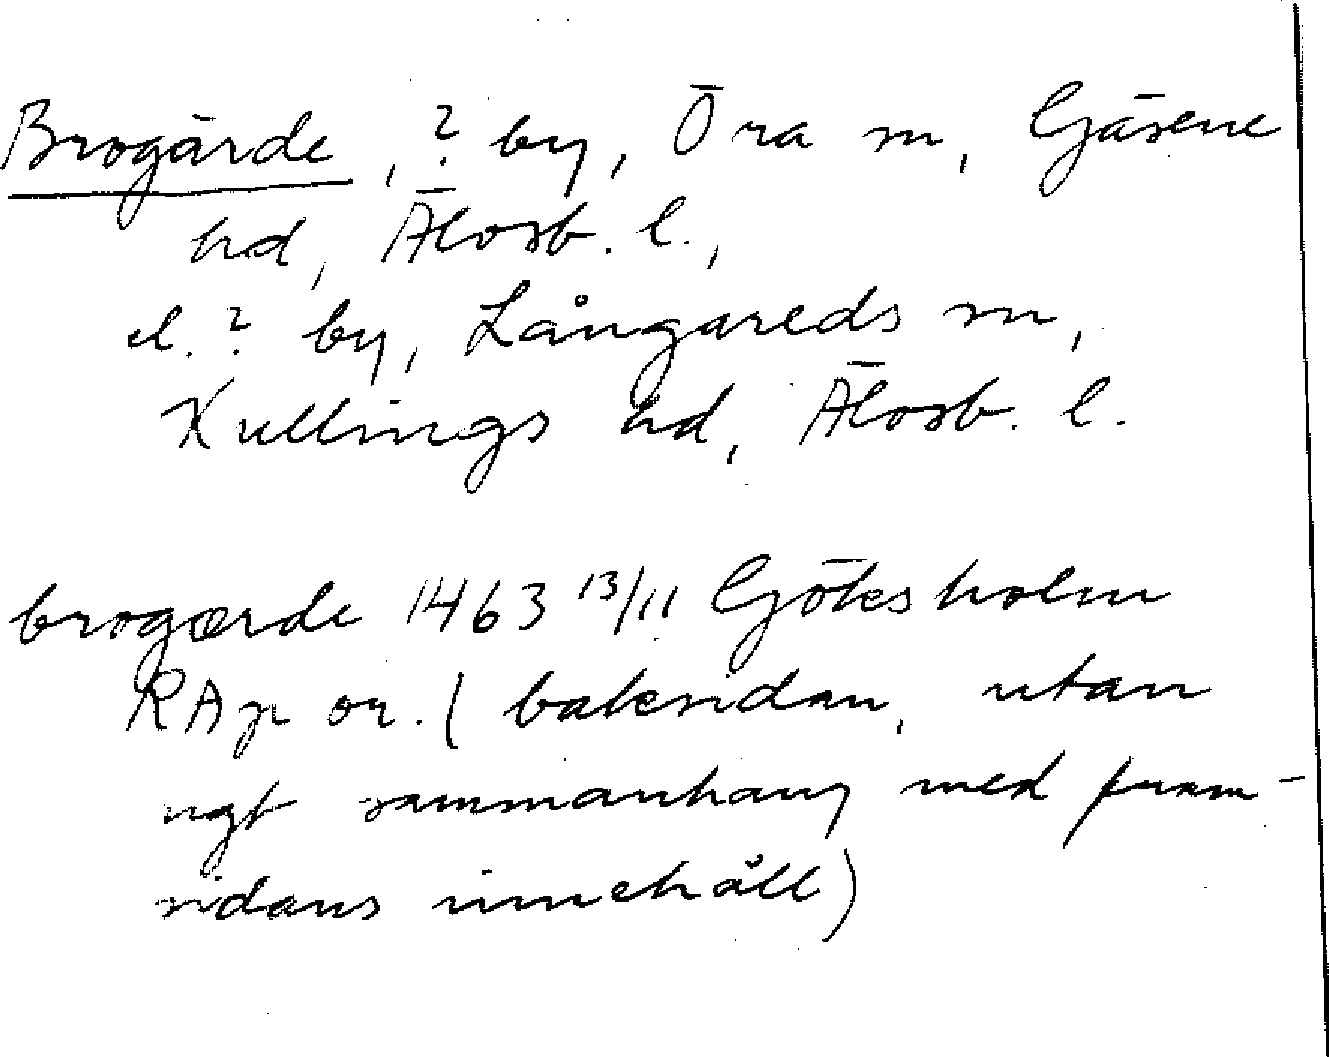 Brogärde, ? by, Öra sn, Gäsene
hd, Älvsb. l.,
el. ? by, Långareds sn,
Kullings hd, Älvsb. l.
brogærde 1463 13/11 Göksholm
RAp or. (baksidan, utan
ngt sammanhang med fram-
sidans innehåll)